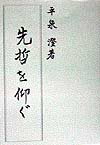 平泉澄著
先哲を仰ぐ